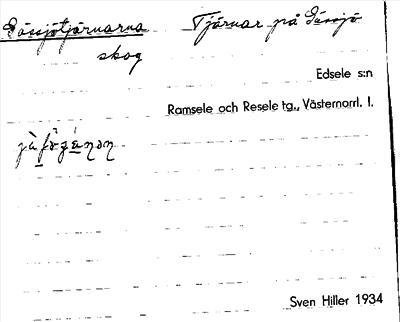 Gåssjötjärnarna Tjärnar på Gåssjö
skog
Edsele s:n
Ramsele och Resele tg., Västernorrl. l.
Sven Hiller 1934